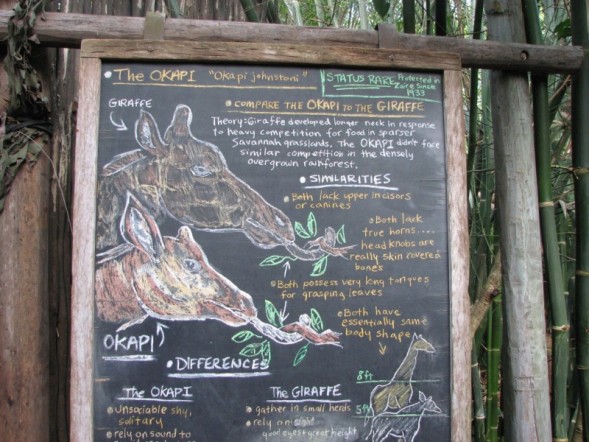 The OKAPI "Okapi johnstoni"
STATUS RARE Protected in
Zaire since
1933
GIRAFFE
COMPARE THE OKAPI TO THE GIRAFFE
Theory: Giraffe developed longer neck in response
to heavy competition for food in sparser
Savannah grasslands. The OKAPI didn't face
similar competition in the densely
overgrown rainforest.
SIMILARITIES
Both lack upper incisors
or canines
Both lack
true horns....
head knobs are
really skin covered
bones
Both possess very long tongues
for grasping leaves
Both have
essentially same
body shape
OKAPI
DIFFERENCES
The OKAPI
Unsociable shy,
solitary
rely on sound to
The GIRAFFE
gather in small herds
rely on sight
good eyes & great height
8ft
5ft